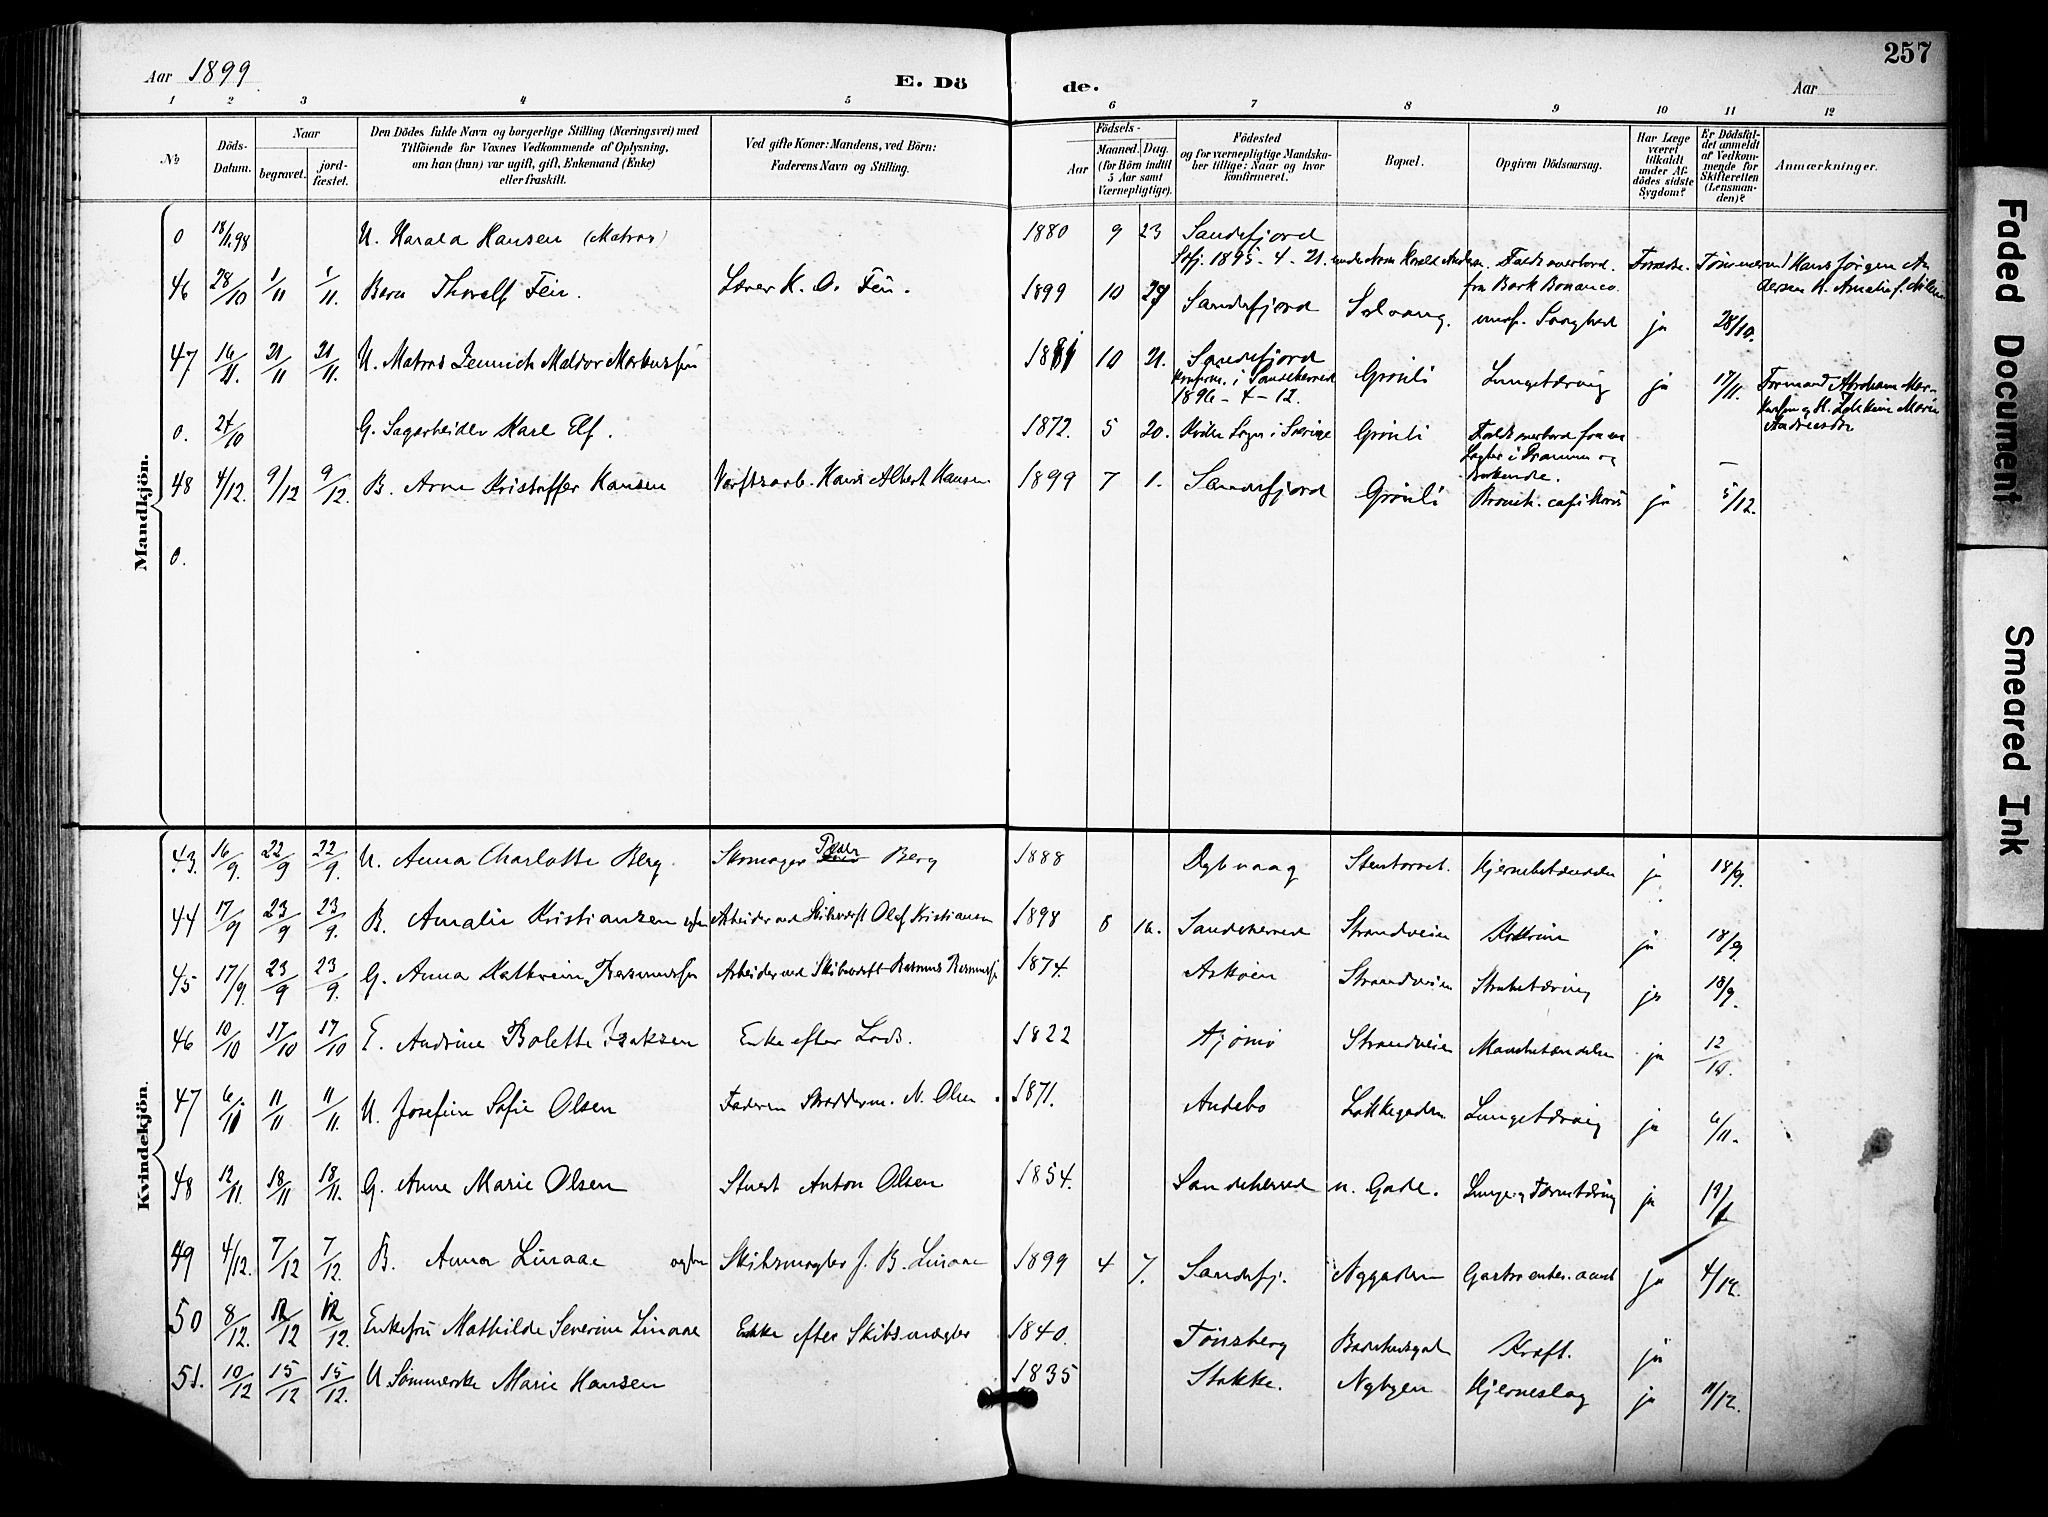 257
Aar 1899
E. Dö
de.
Aar
1 2 3 4 5 6 7 8 9 10 11 12
No
Döds-Datum.
Naar
begravet.
jord-fæstet.
Den Dödes fulde Navn og borgerlige Stilling (Næringsvei) med
Tilföiende for Voxnes Vedkommende af Oplysning,
om han (hun) var ugift, gift, Enkemand (Enke)
eller fraskilt.
Ved gifte Koner: Mandens, ved Börn:
Faderens Navn og Stilling.
Födsels-
Aar
Maaned. Dag.
(for Börn indtil
5 Aar samt
Værnepligtige).
Födested
og for værnepligtige Mandska-
ber tillige: Naar og hvor
konfirmeret.
Bopæl.
Opgiven Dödsaarsag.
Har Læge
været
tilkaldt
under Af-
dödes sidste
Sygdom?
Er Dödsfal-
det anmeldt
af Vedkom-
mende for
Skifteretten
(Lensman-
den)?
Anmærkninger.
Mandkjön.
0 18/1 98 U. Harald Hansen (Matros) 1880 9 23 Sandefjord
Sdfj. 1895 - 4 - 21. Faldt overbord
fra Bark Bonanco.
Tömmermand Hans Jørgen An
dersen
46 28/10 1/11 1/11. Barn Thoralf Fen. Lærer K. O. Fen. 1899 10 27 Sandefjord Solvang. medf. Svaghed ja 28/10.
47 16/11. 21/11 21/11. U. Matros Markussen 10 21. Sandefjord Grönli Lungetæring ja 17/11.
Konfirm. i Sandeherred
1896 - 4 - 12.
Formand Abraham Mar-
0. 24/10 G. Sagarbeider Karl Elf. 1872. 5 20. i Sverige Grönli Faldt overbord fra en
Lægter i Drammen og
druknede. —
48 4/12. 9/12 9/12. B. Arne Kristoffer Hansen Værftsarb. Hans Albert Hansen 1899 7 1. Sandefjord Grönli Bronch. capillaris ja 5/12.
0.
Kvindekjön.
43. 16/9. 22/9 22/9. U. Anna Charlotte Berg. Skomager Peder Berg 1888 Dybvaag Stentorvet. Hjernebetændelse ja 18/9.
44 17/9 23/9 23/9. B. Amalie Kristiansen Arbeider ved Skibsværft Olaf Kristiansen 1898 6 16. Sandeherred Strandveien ja 18/9
45 17/9. 23/9 23/9. G. Anna Kathrine Rasmussen Arbeider ved Skibsværft Rasmus Rasmussen 1874. Askøen Strandveien Strubetæring ja 18/9.
46 10/10 17/10 17/10 E. Andrine Bolette Isaksen Enke efter Lods. 1822 Tjömö Strandveien Mavebetændelse ja 12/10.
47 6/11 11/11 11/11. U. Josefine Sofie Olsen Faderen Skræderm. N. Olsen 1871. Andebo Løkkegaden Lungetæring ja 6/11.
48 12/11. 18/11 18/11. G. Anne Marie Olsen Stuert Anton Olsen 1854. Sandeherred n. Gade. Lunge og Tarmtæring ja
49 4/12. 7/12 7/12. B. Anna Linaae Skibsmægler J. B. Linaae 1899 4 7. Sandefj. Nygaden Gastroenter. acut ja 4/12.
50 8/12. 12/12 12/12. Enkefru Mathilde Severine Linaae Enke efter Skibsmægler 1840. Tönsberg Kræft. ja
51. 10/12 15/12 15/12. U Sömmerske Marie Hansen 1835 Stokke. Nybyen Hjerneslag ja 11/12.
Faded Document
Smeared Ink